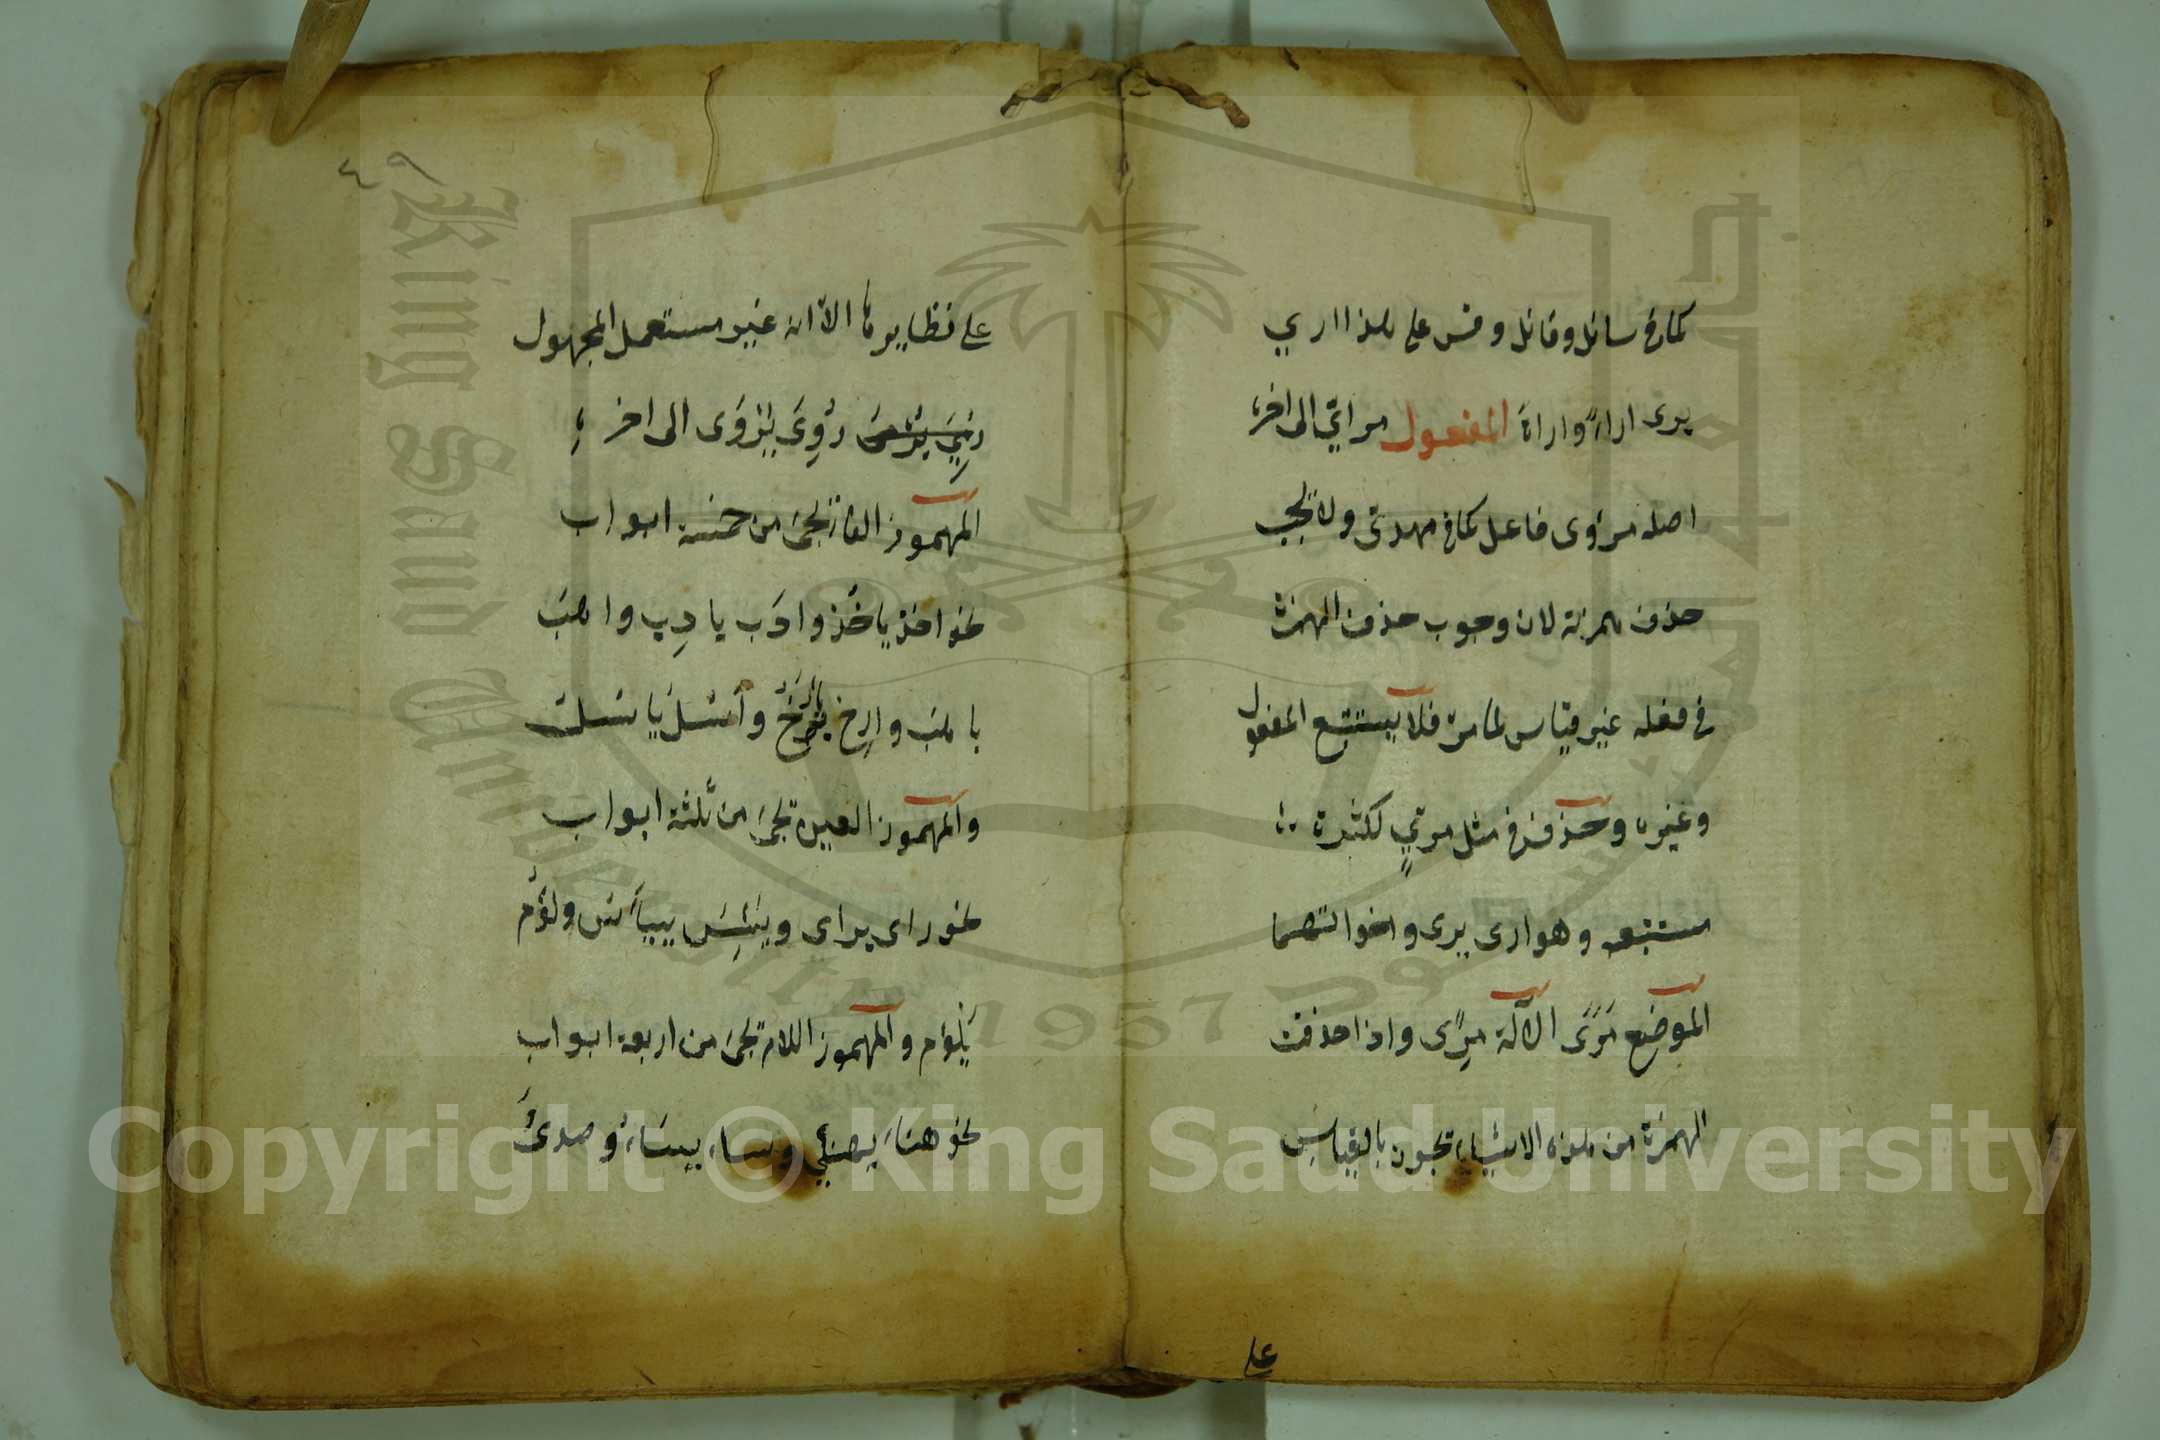 كما في سائل وقائل وقس على هذا اري
يرى اراءً واراة المفعول مراي الى اخره
اصله مرؤى فاعل كما في مهدى ولا تجب
حذف همزته لان وجوب حذف الهمزة
في فعله غير قياس لما مر فلا يستتبع المفعول
وغيره وحذف في مثل مري لكثرة
مستتبعه وهو ارى يرى واخواتهما
الموضع مَرًى الآلة مِرًى واذا حذفت
الهمزة من هذه الاشياء تجوز بالقياس
على
٤٩
على نظايرها الا انه غير مستعمل المجهول
رُئِيَ يُرْئَى رُوِىَ يُرْوَى الى اخره
المهموز الفاء تجئ من خمسة ابواب
نحو اخذ ياخُذ وادَب يادِب واهَبَ
ياهَب وارِخ يارَخ وأسَلَ يا سُل
والمهموز العين تجئ من ثلثة ابواب
نحو راى يراى ويَئِسَ ييأس ولؤُم
يلؤم والمهموز اللام تجئ من اربعة ابواب
نحو هناء يهنئ وساء يساء وصدئ
King Saud University
1957
Copyright © King Saud University